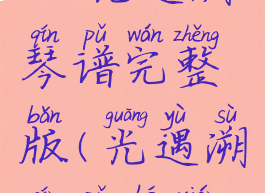 qín pǔ wán zhěng
琴谱完整
bǎn guāng yù sù
版(光遇溯